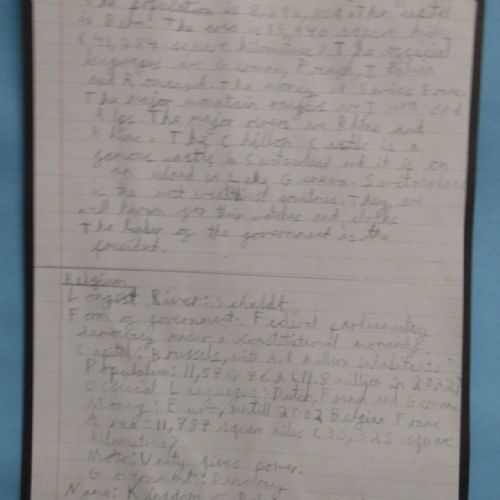 The population is 8,292,809. The capital
is Bern. The area is 15,940 square miles
(41,284 square kilometers? The official
languages are German, French, Italian
and Romansch. The money is Swiss Franc
The major mountain ranges are Jura and
Alps. The major rivers are Rhone and
Rhine. The Chillon Castle is a
famous castle in Switzerland and it is on
an island in Lake Geneva. Switzerland
is the most wealthiest countries. They are
well known for their watches and clocks
The leader of the government is the
president.
Belgium
Longest River: Scheldt
Form of government: Federal parlimentary
democracy under a constitutional monarchy
Capital: Brussels, with million inhabitants
Population: 11,570,762 (11.8 million in 2022)
Official Languages: Dutch, French and German
Money: Euro, until 2002 Belgian Franc
Area: 11,787 square miles (30,528 square
kilometers?
Moto: Unity gives power:
Government: Democracy
Name: Kingdom of